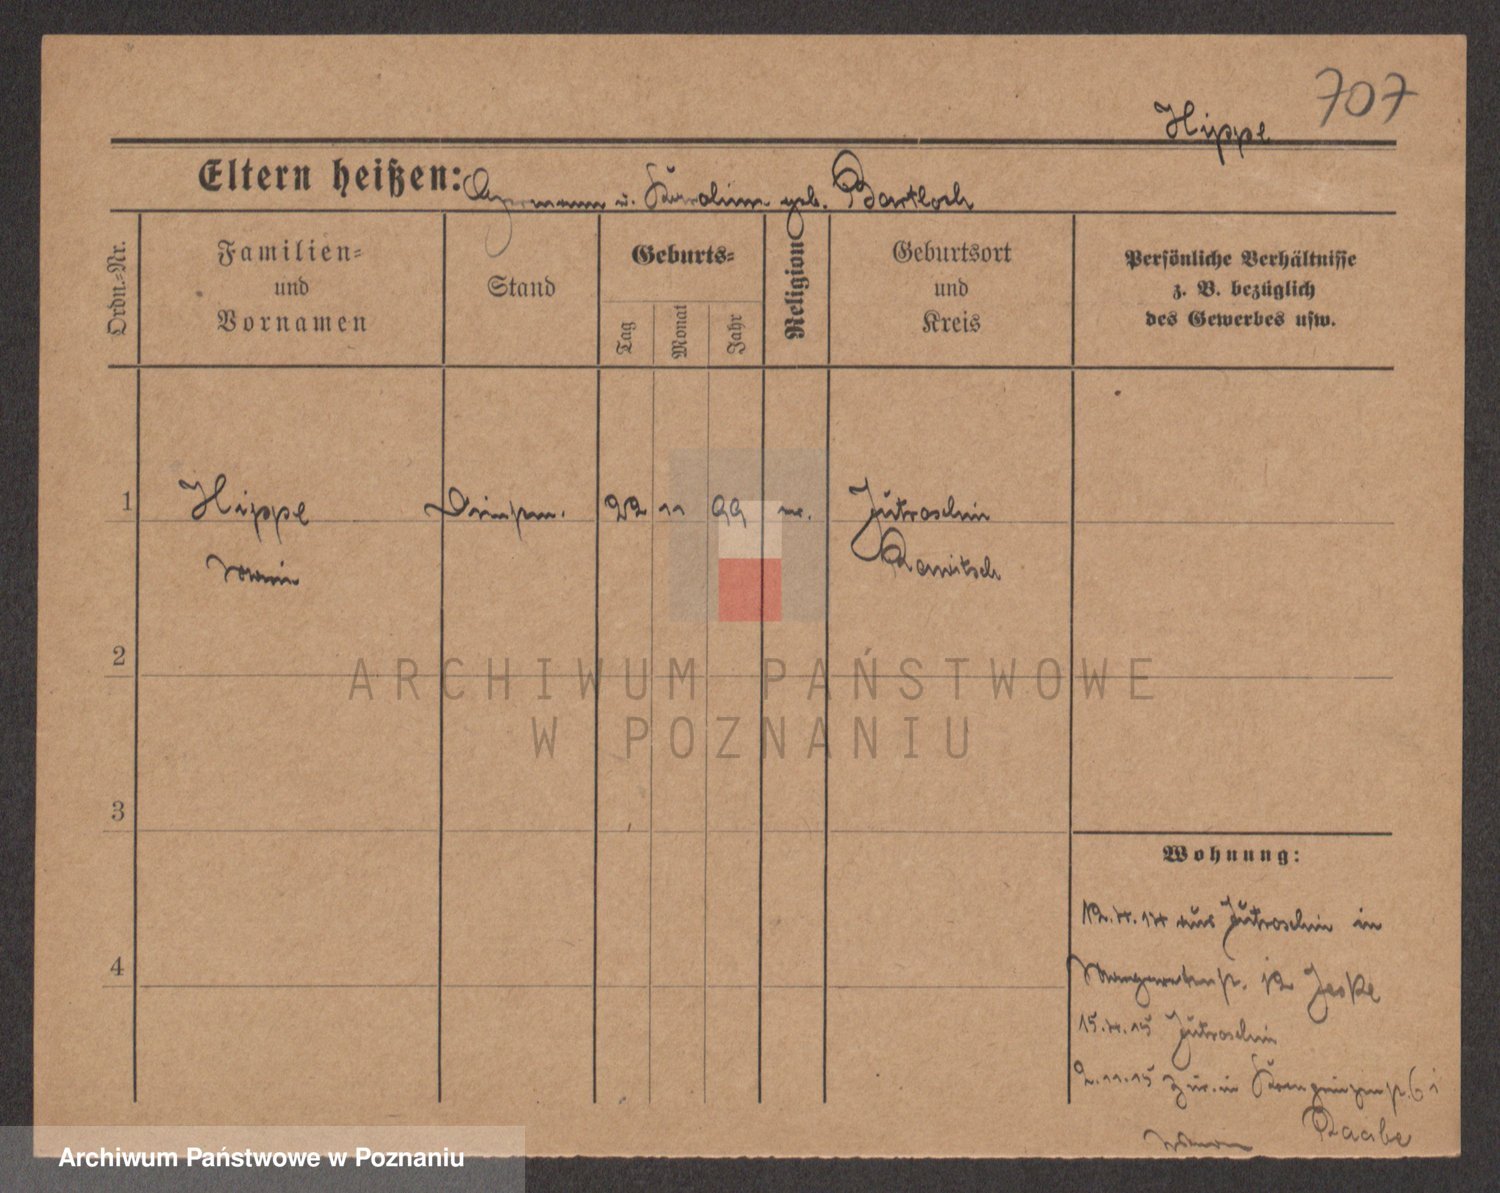 707
Hippe
Eltern heißen: Hermann u. Karoline geb. Bartloch
Ordn.-Nr.
Familien-
und
Vornamen
Stand
Geburts-
Tag
Monat
Jahr
Religion
Geburtsort
und
Kreis
Persönliche Verhältnisse
z. B. bezüglich
des Gewerbes usw.
1 Hippe 22 11 99 Jutroschin
Rawitsch
2
3
4
Wohnung:
12.4.14 aus Jutroschin in
12 Jeske
15.4.15 Jutroschin
2.11.15 zur. in 6
Raabe
ARCHIWUM PAŃSTWOWE
W POZNANIU
Archiwum Państwowe w Poznaniu